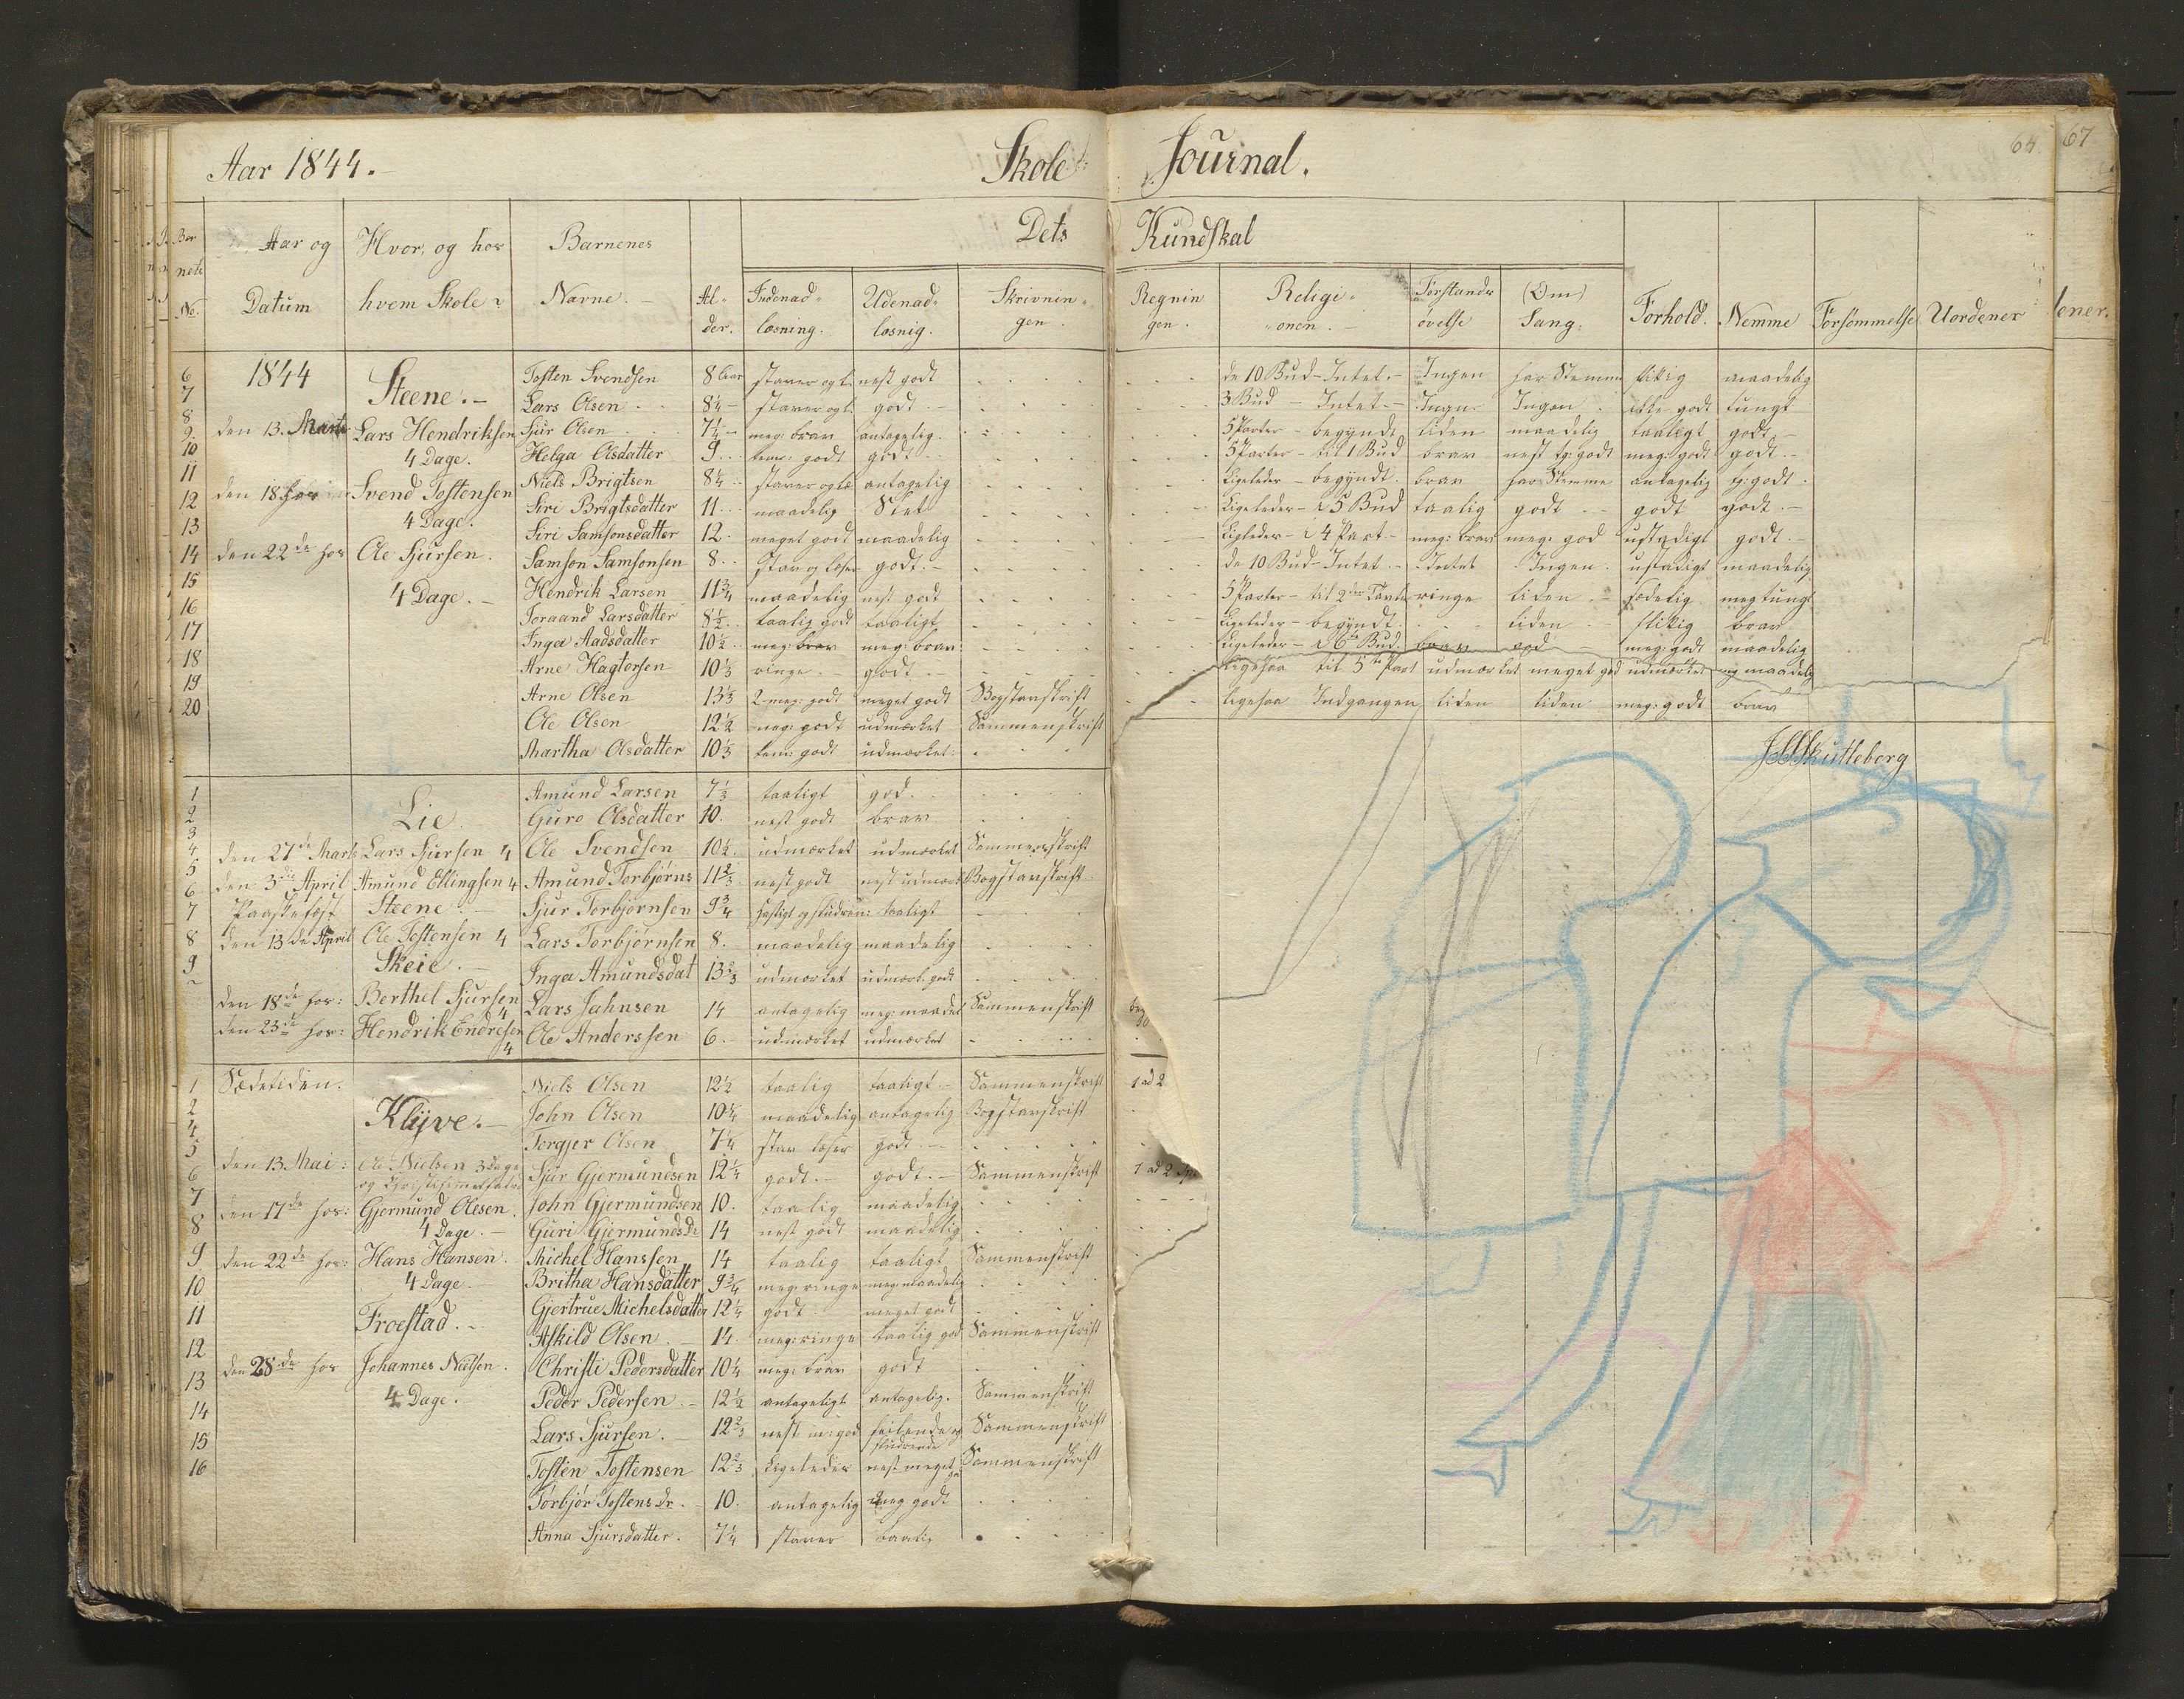 Aar 1844. Skole Journal. 64. 67
Dets Kundskal
Bar nets No.
Aar og Datum
Hvor, og hos hvem Skole
Barnenes Navne.
Al- der.
Indenad- læsning.
Udenad- læsnig.
Skrivnin- gen.
Regnin gen.
Religi- onen.
Forstands øvelse
(Om) Sang.
Forhold.
Nemme
Forsømmelse
Uordener
lener.
1844
6 Tosten Svendsen 8 Aar staver og l. nest godt de 10 Bud - Intet. - Ingen har Stemme flitig maadelig
7 Steene. - Lars Olsen 8¼ staver og l. godt. - 3 Bud - Intet - Ingen Ingen ikke godt tungt
8 den 13. Marts Lars Hendriksen Sjur Olsen 7¼ meg: brav antagelig. 5 Parter - begyndt liden maadelig taaligt godt. -
9. 4 Dage. Helga Olsdatter 9 tem: godt godt 5 Parter - til 1 Bud brav nest tg: godt meg: godt godt. -
10 Niels Brigtsen 8¼ staver og læ antagelig Ligeleder - begyndt. brav har Stemme antagelig tg: godt.
11 den 18 hos Svend Tostensen Siri Brigtsdatter 11 maadelig Slet Ligeleder - 5 Bud taalig godt godt godt. -
12 4 Dage. Siri Samsonsdatter 12. meget godt maadelig Ligeleder - 4 Part. - meg: brav meg: god ustadigt godt. -
13 den 22de hos Ole Sjursen. Samson Samsonsen 8. stav og læser godt. - de 10 Bud - Intet. - Intet Ingen. ustadigt maadelig
14 4 Dage. - Hendrik Larsen 11¾ maadelig nest godt 5 Parter - til 2den Tavle ringe liden sædelig meg tungt
15 Toraand Larsdatter 8½ taalig godt taaligt Ligeleder - begyndt. liden flitig brav
16 Inga Aadsdatter 10½ meg: brav meg: brav Ligeleder - 6te Bud. brav god meg: godt maadelig
17 Arne Hagtorsen 10⅓ ringe. - godt ligesaa til 5te Part udmærket meget god udmærket meg maadelig
18 Arne Olsen 13⅓ meg: godt meget godt Bogstavskrift ligesaa Indgangen liden liden meg: godt brav
19 Ole Olsen 12½ meg: godt udmærket Sammenskrift
20 Martha Olsdatter 10⅓ tem: godt udmærket
Skutleberg
1 Amund Larsen 7⅓ taaligt god.
2 Lie Guro Olsdatter 10. nest godt brav
3 den 27de Marts Lars Sjursen 4 Ole Svendsen 10½ udmærket udmærket Sammenskrift
4 den 3die April Amund Ellingsen 4 Amund Torbjørns 11⅔ nest godt nest udmærk Bogstavskrift
5 Paaskefest Steene. Sjur Torbjørnsen 9¾ hastigt og studren: taaligt
6 den 13de April Ole Tostensen 4 Lars Torbjørnsen 8. maadelig maadelig
7 Skeie. - Inga Amundsdat 13⅔ udmærket udmærk: godt
8 den 18de hos: Berthel Sjursen 4 Lars Jahnsen 14 antagelig meg: maadel Sammenskrift
9 den 23de hos: Hendrik Endresen 4 Ole Anderssen 6. udmærket udmærket
1 Sædetiden. Niels Olsen 12½ taalig taaligt Sammenskrift 1 ad 2
2 Klÿve. - John Olsen 10¼ maadelig antagelig Bogstavskrift
4 Torgjer Olsen 7¼ stav læser godt. -
5 den 13. Mai: Ole Nielsen 3 Dage Sjur Gjermundsen 12¼ godt. - godt. - Sammenskrift 1 ad 2
6 den 17de hos: Gjermund Olesen. John Gjermundsen 10. taalig maadelig
7 4 Dage. - Guri Gjermundsdr 14 nest godt maadelig
8 den 22de hos: Hans Hansen. Michel Hanssen 14 taalig taaligt Sammenskrift
9 4 Dage. Britha Hansdatter 9¾ meg: ringe meg: maadelig
10 Froestad. - Gjertrue Michelsdatter 12¼ godt meget godt
11 Askild Olsen. - 14. meg: ringe taalig god Sammenskrift
12 den 28de hos Johannes Nielsen. Christi Pedersdatter 10¼ meg: brav godt
13 4 Dage. Peder Pedersen. - 12½ antageligt antagelig. Sammenskrift
14 Lars Sjursen. - 12⅔ nest m: god feilende og studrende Sammenskrift
15 Tosten Tostensen 12⅔ Ligeleder nest meget Sammenskrift
16 Torbjør Tostensdr. 10. antagelig meg godt
Anna Sjursdatter. 7¼ staver taalig